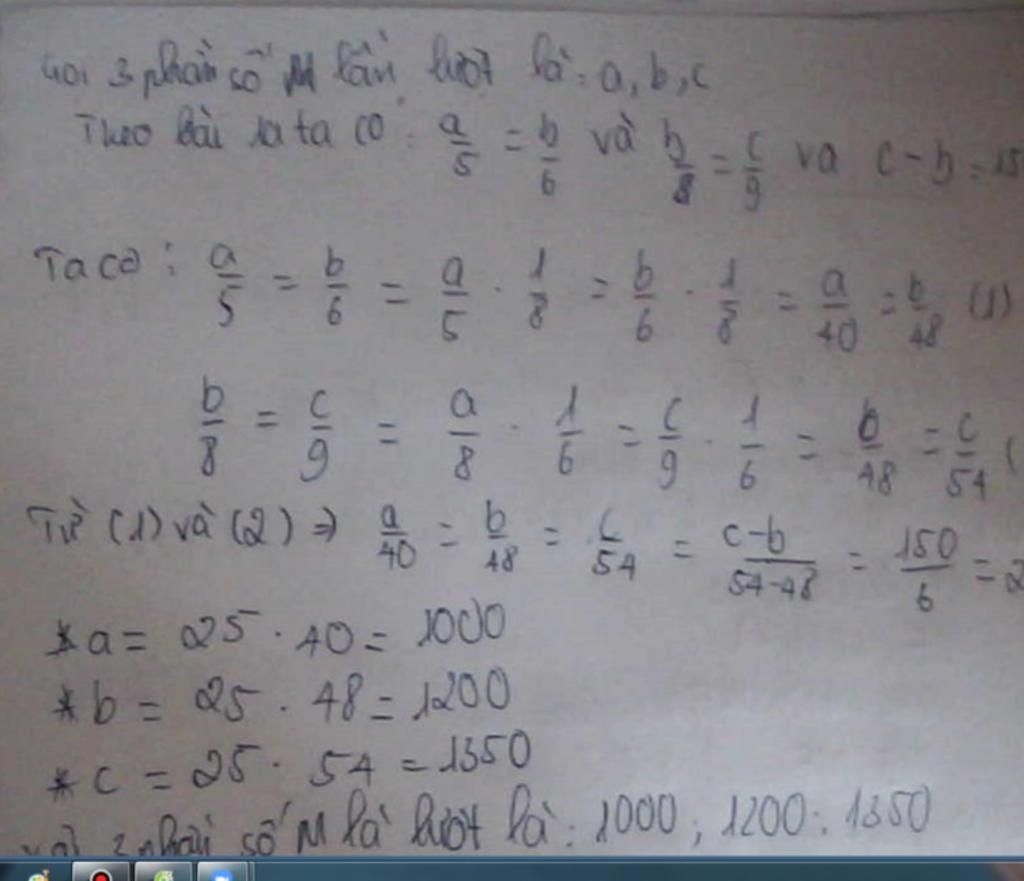 Gọi 3 phần số M lần lượt là: a, b, c
Theo bài ra ta có: a/5 = b/6 và b/8 = c/9 va c - b = 15
Ta co: a/5 = b/6 = a/5 . 1/8 = b/6 . 1/8 = a/40 = b/48 (1)
b/8 = c/9 = a/8 . 1/6 = c/9 . 1/6 = b/48 = c/54 (
Từ (1) và (2) => a/40 = b/48 = c/54 = c-b/54-48 = 150/6 = 2
* a = 25 . 40 = 1000
* b = 25 . 48 = 1200
* c = 25 . 54 = 1350
3 phần số M là lượt là: 1000; 1200; 1350